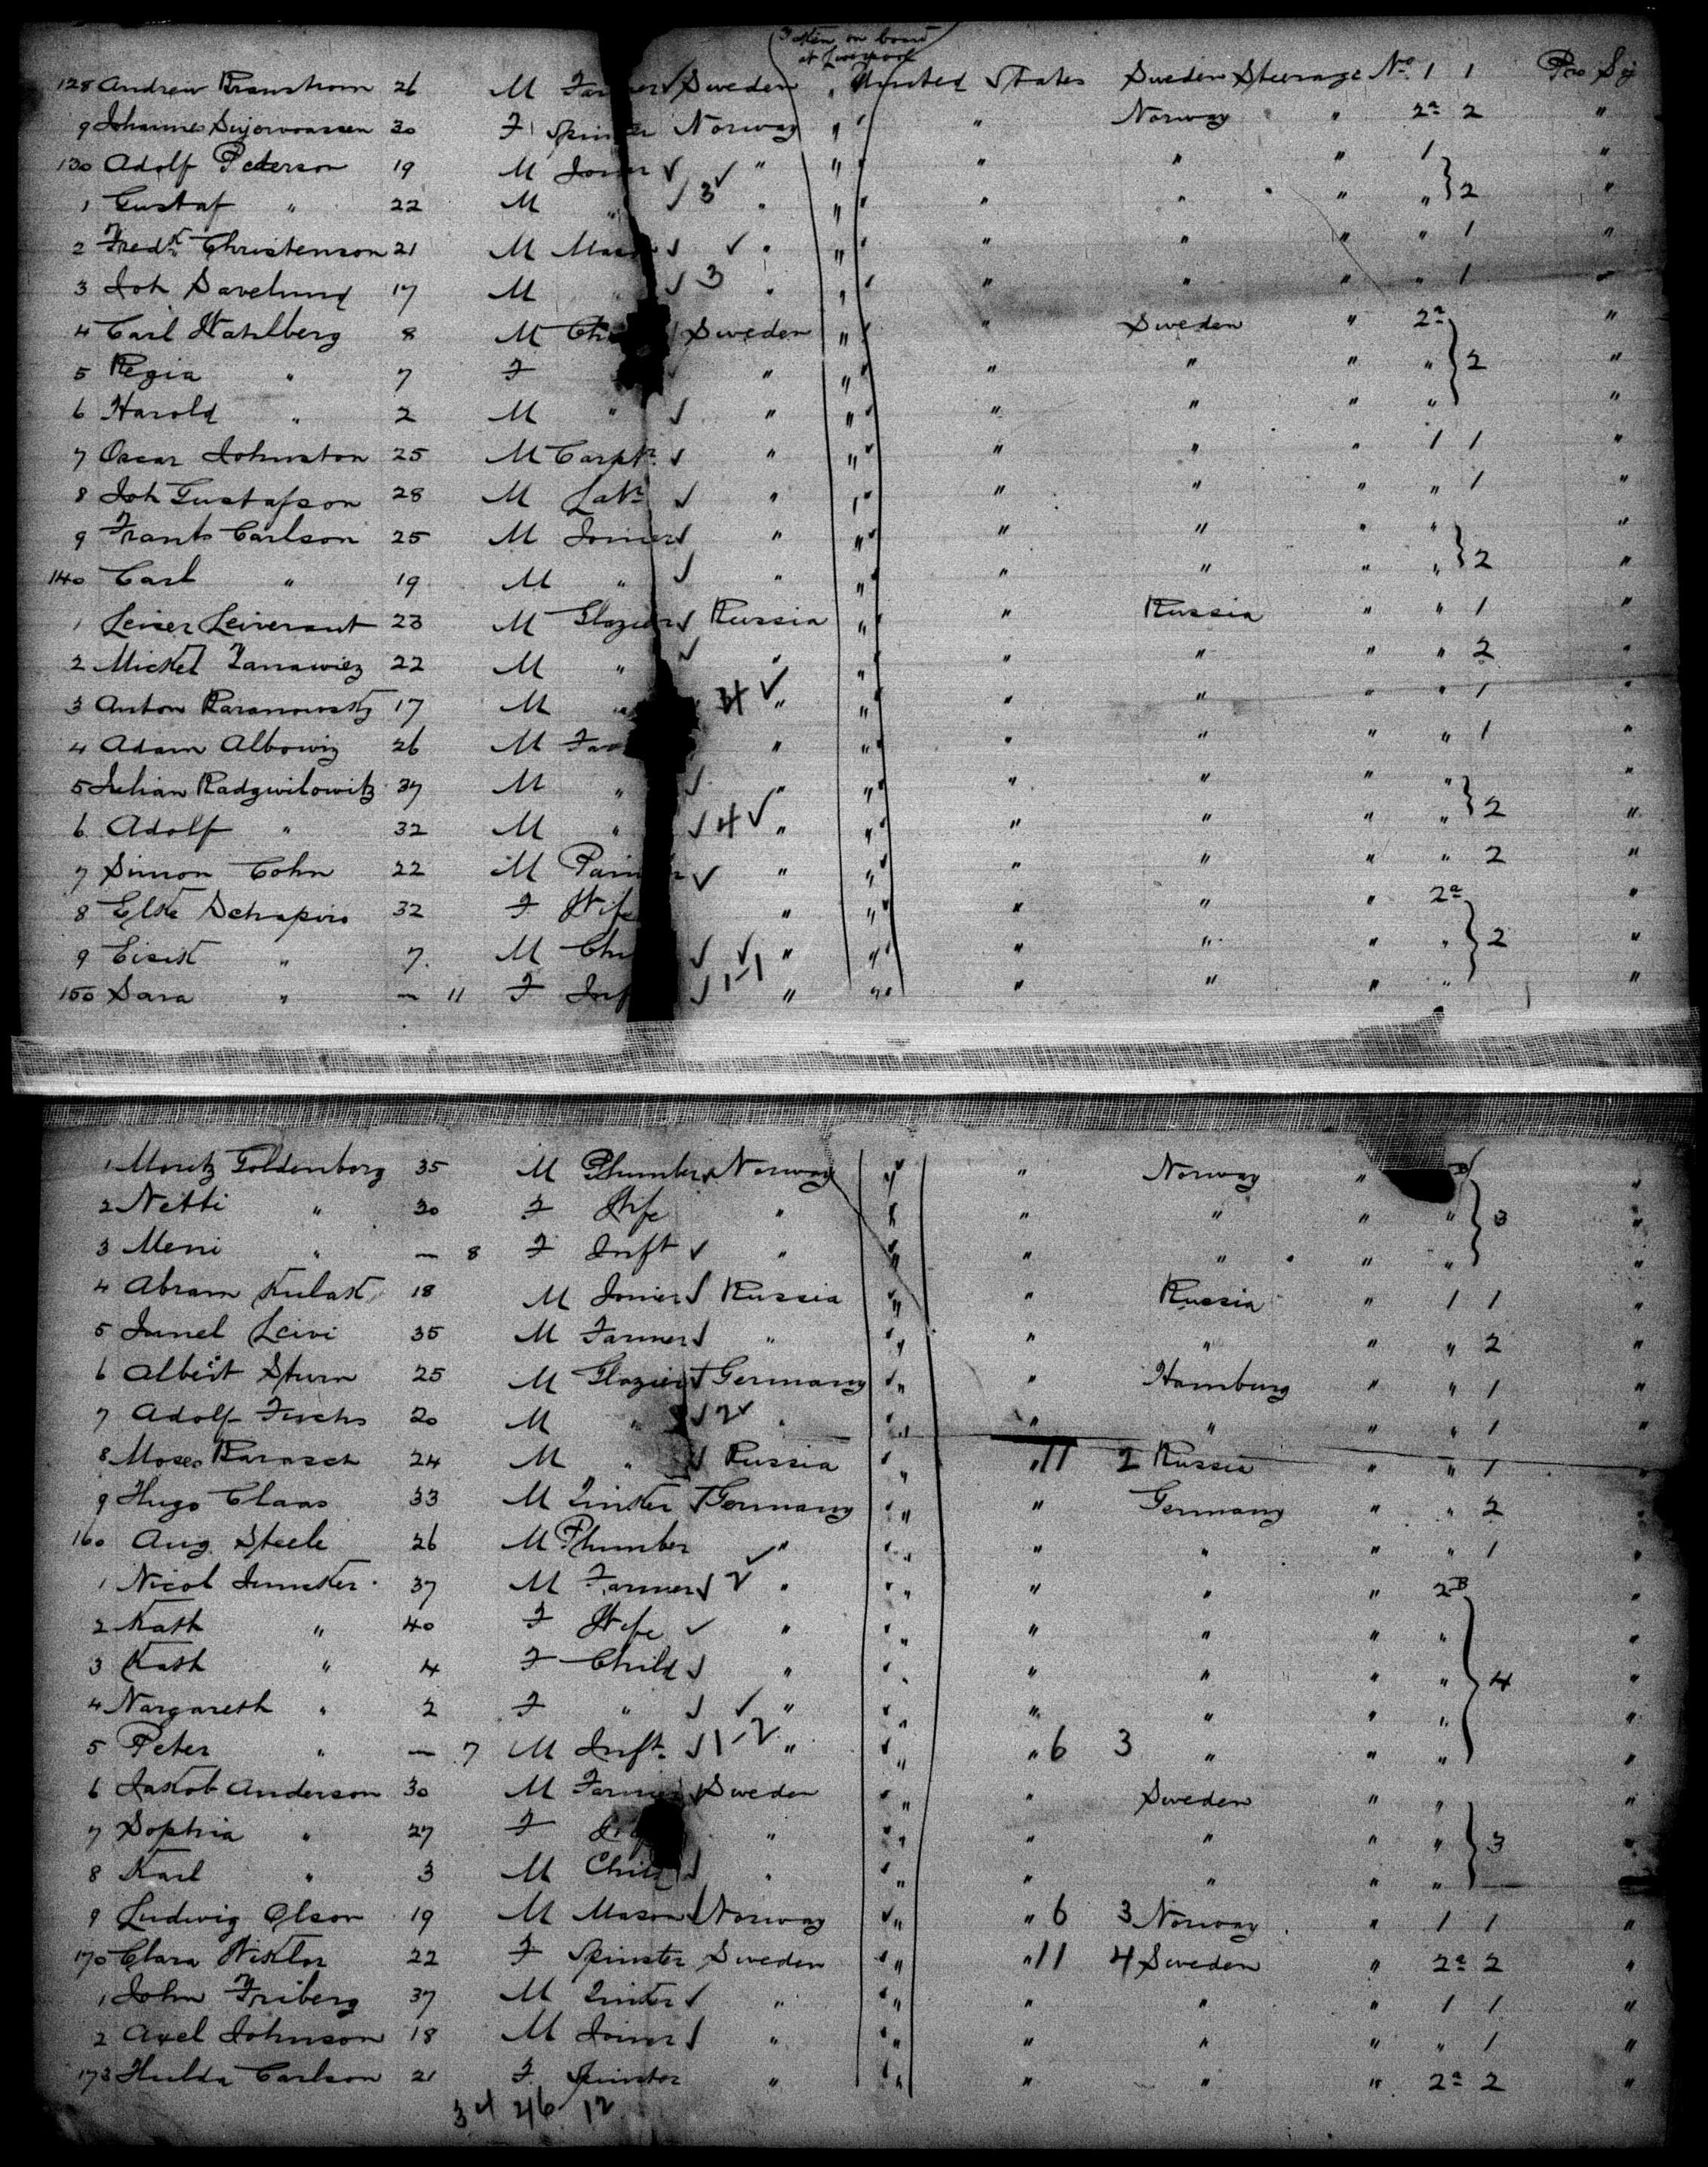 Taken on board
at Liverpool
128 Andrew 26 M Sweden " United States Sweden Steerage No 1 1
9 30 F Norway " " Norway " 2a 2 "
130 Adolf Peterson 19 M " " " " " 1 "
1 Gustaf " 22 M " 3 " " " " " " } 2 "
2 Fredk Christenson 21 M " " " " " " 1 "
3 Joh 17 M " 3 " " " " " " 1 "
4 Carl Wahlberg 8 M Sweden " " Sweden " 2a "
5 Regia " 7 F " " " " " " } 2 "
6 Harold " 2 M " " " " " " " "
7 Oscar Johnston 25 M Carptr " " " " " 1 1 "
8 Joh Gustafson 28 M Labr " " " " " " 1 "
9 Carlson 25 M Joiner " " " " " " "
140 Carl " 19 M " " " " " " " } 2 "
1 23 M Glazier Russia " " Russia " " 1 "
2 Mickel 22 M " " " " " " " 2 "
3 Anton 17 M " 4 " " " " " " 1 "
4 Adam Albowiz 26 M " " " " " " 1 "
5 Julian Radzwilowitz 37 M " " " " " " " "
6 Adolf " 32 M " 4 " " " " " " } 2 "
7 Simon Cohn 22 M " " " " " " 2 "
8 Elke Schapiro 32 F Wife " " " " " 2a "
9 Eisik " 7 M " " " " " " } 2 "
150 Sara " — 11 F 1-1 " " " " " "
1 Moritz Goldenberg 35 M Plumber Norway " " Norway " "
2 Netti " 30 F Wife " " " " " " } 3 "
3 Meni " — 8 F Inft " " " " " " "
4 Abram Kulak 18 M Joiner Russia " " Russia " 1 1 "
5 35 M Farmer " " " " " " 2 "
6 Albert Sturm 25 M Glazier Germany " " Hamburg " " 1 "
7 Adolf Fuchs 20 M " 2 " " " " " " 1 "
8 Moses 24 M " Russia " " 11 2 Russia " " 1 "
9 Hugo Claas 33 M Germany " " Germany " " 2 "
160 Aug Steele 26 M Plumber " " " " " " 1 "
1 Nicol 37 M Farmer 2 " " " " " 2B "
2 Kath " 40 F Wife " " " " " " "
3 Kath " 4 F Child " " " " " " } 4 "
4 Nargareth " 2 F " " " " " " " "
5 Peter " — 7 M Inft 1-2 " " " 6 3 " " " "
6 Jakob Anderson 30 M Farmer Sweden " " Sweden " " "
7 Sophia " 27 F " " " " " " } 3 "
8 Karl " 3 M Child " " " " " " "
9 Ludwig Olson 19 M Mason Norway " " 6 3 Norway " 1 1 "
170 Clara 22 F Spinster Sweden " " 11 4 Sweden " 2a 2 "
1 John Friberg 37 M " " " " " 1 1 "
2 Axel Johnson 18 M Joiner " " " " " " 1 "
173 Hulda Carlson 21 F Spinster " " " " " 2a 2 "